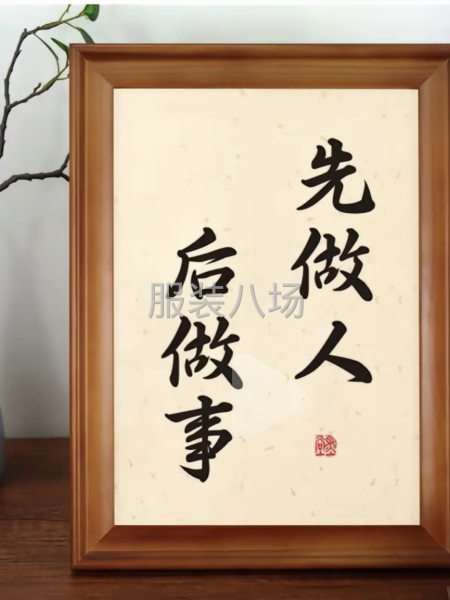 先做人
后做事
服装八场